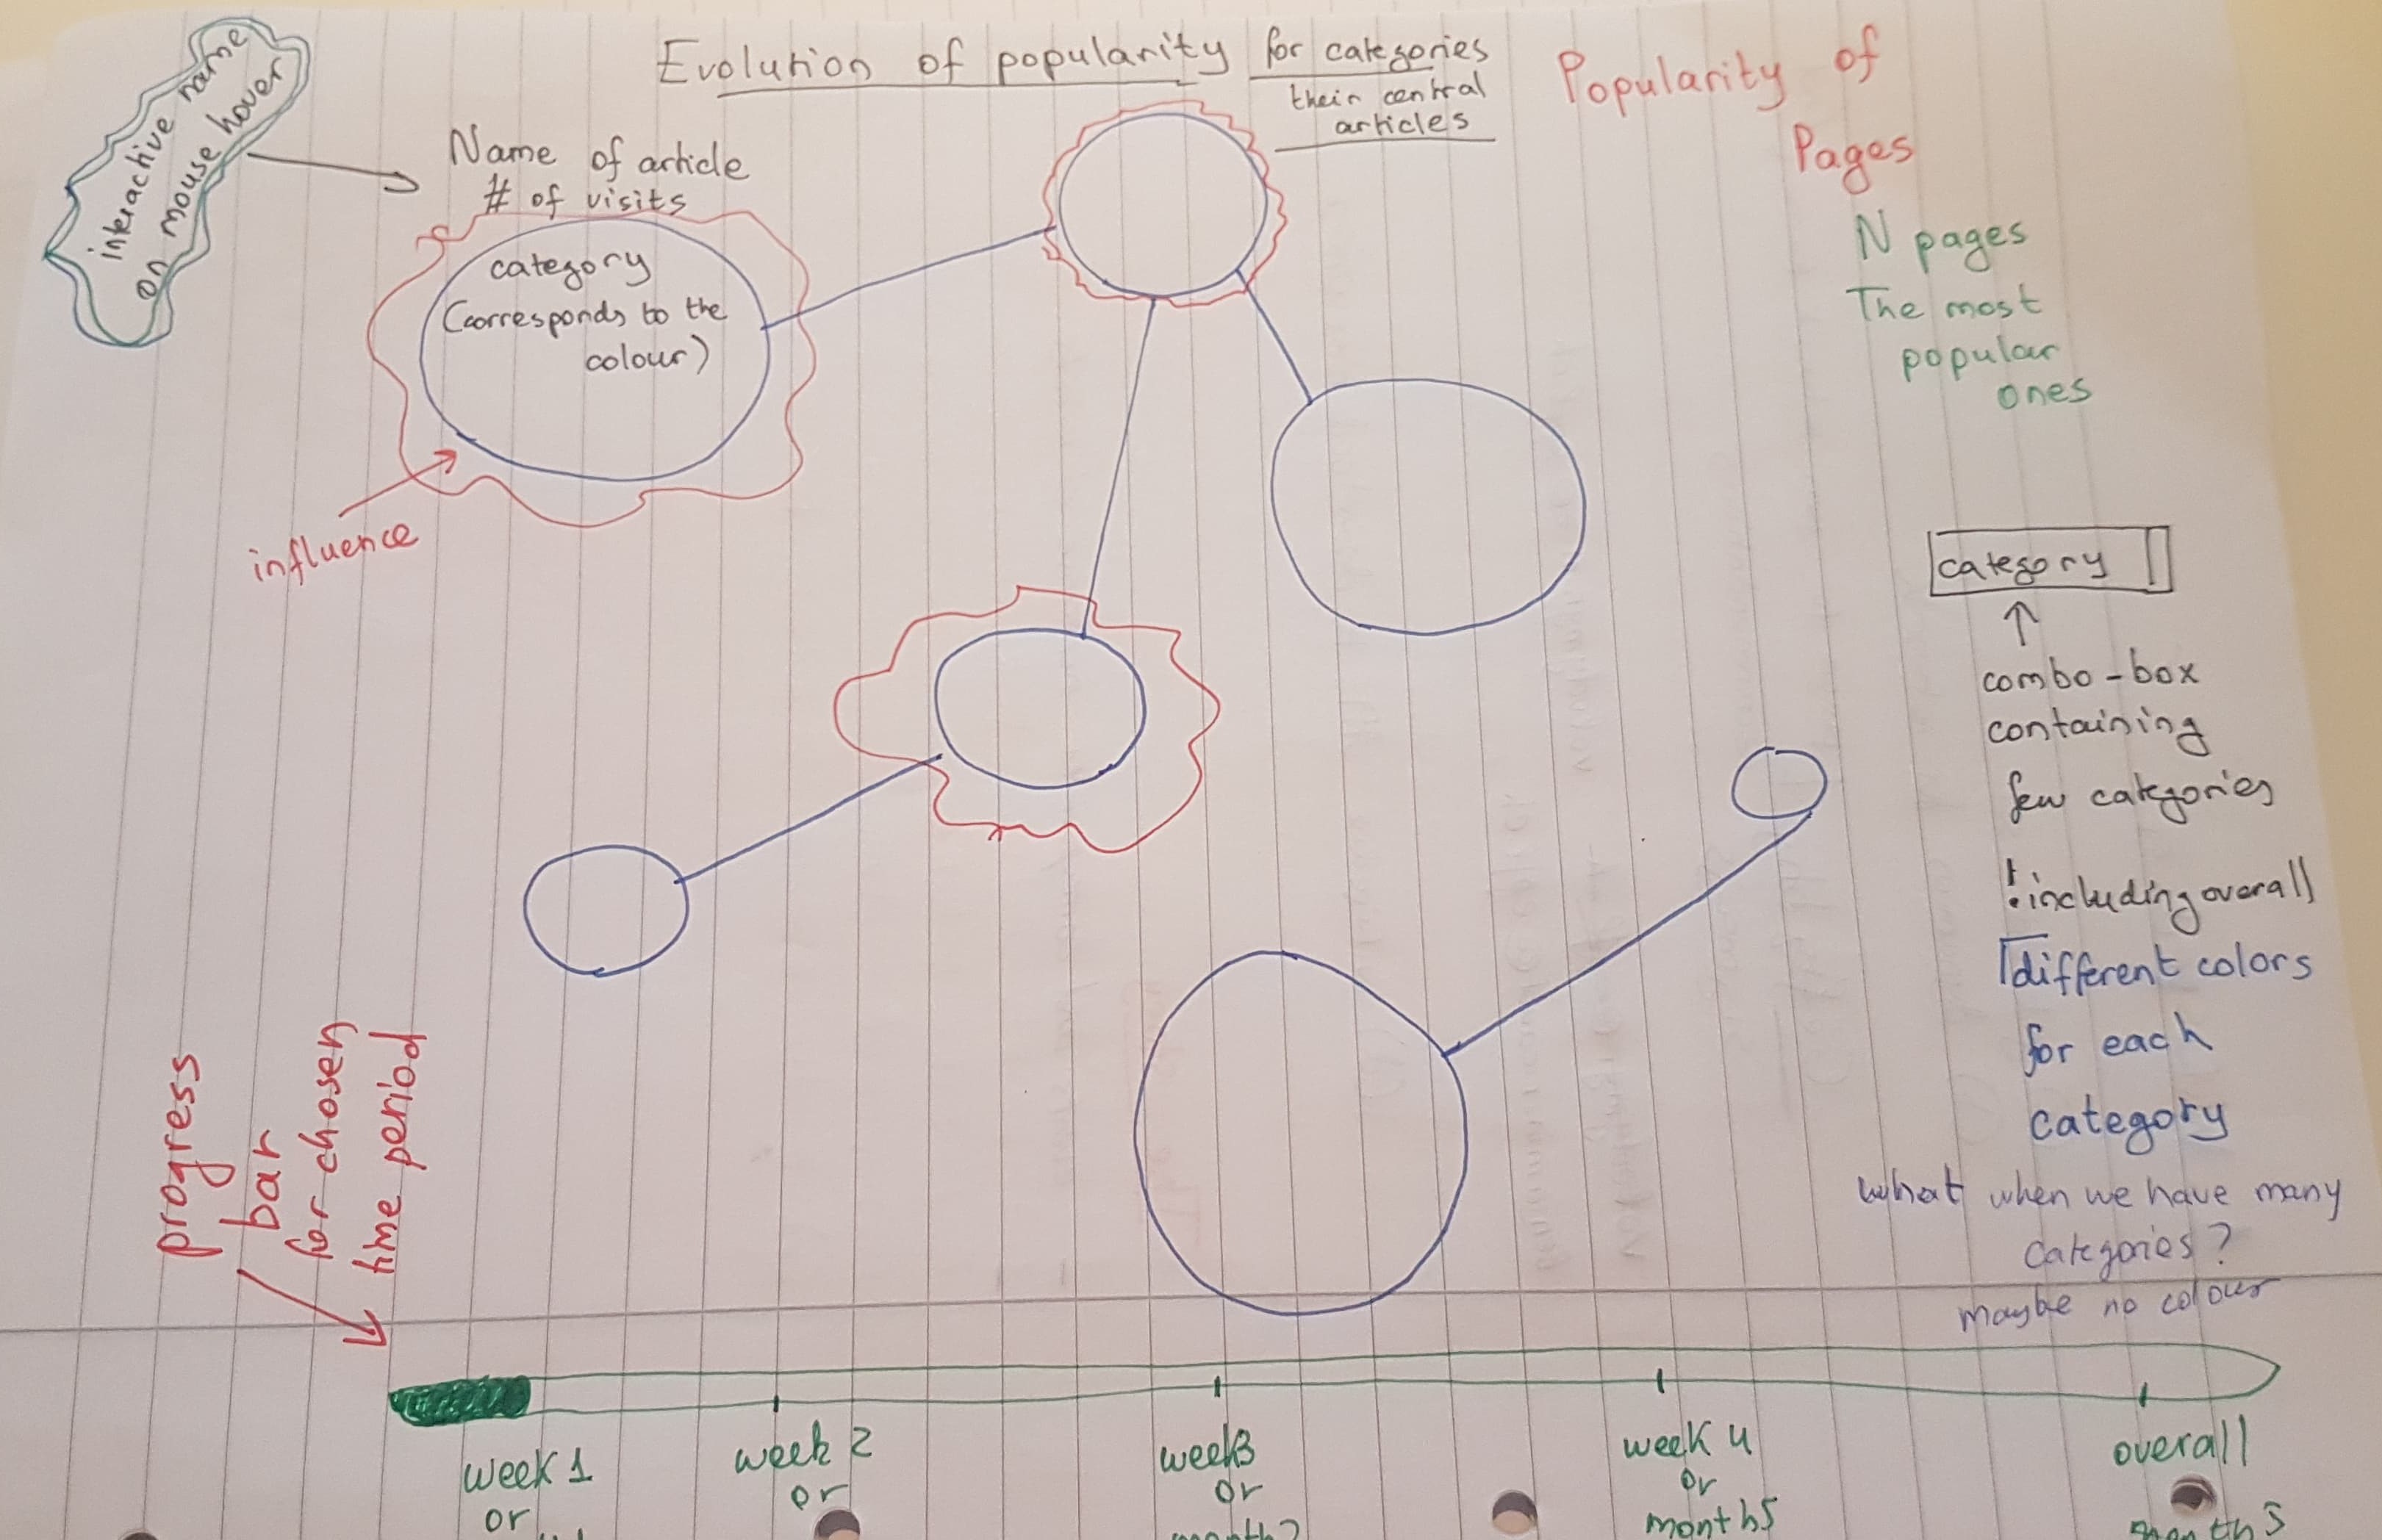 Evolution of popularity for categories
their central
articles
Popularity of
Pages
interactive name
on mouse hover
Name of article
# of visits
category
(corresponds to the
colour)
influence
N pages
The most
popular
ones
category
combo-box
containing
few categories
! including overall
different colors
for each
category
what when we have many
categories?
maybe no colour
progress
bar
for chosen
time period
week 1
or
week 2
or
week3
or
week 4
or
months
overall
months